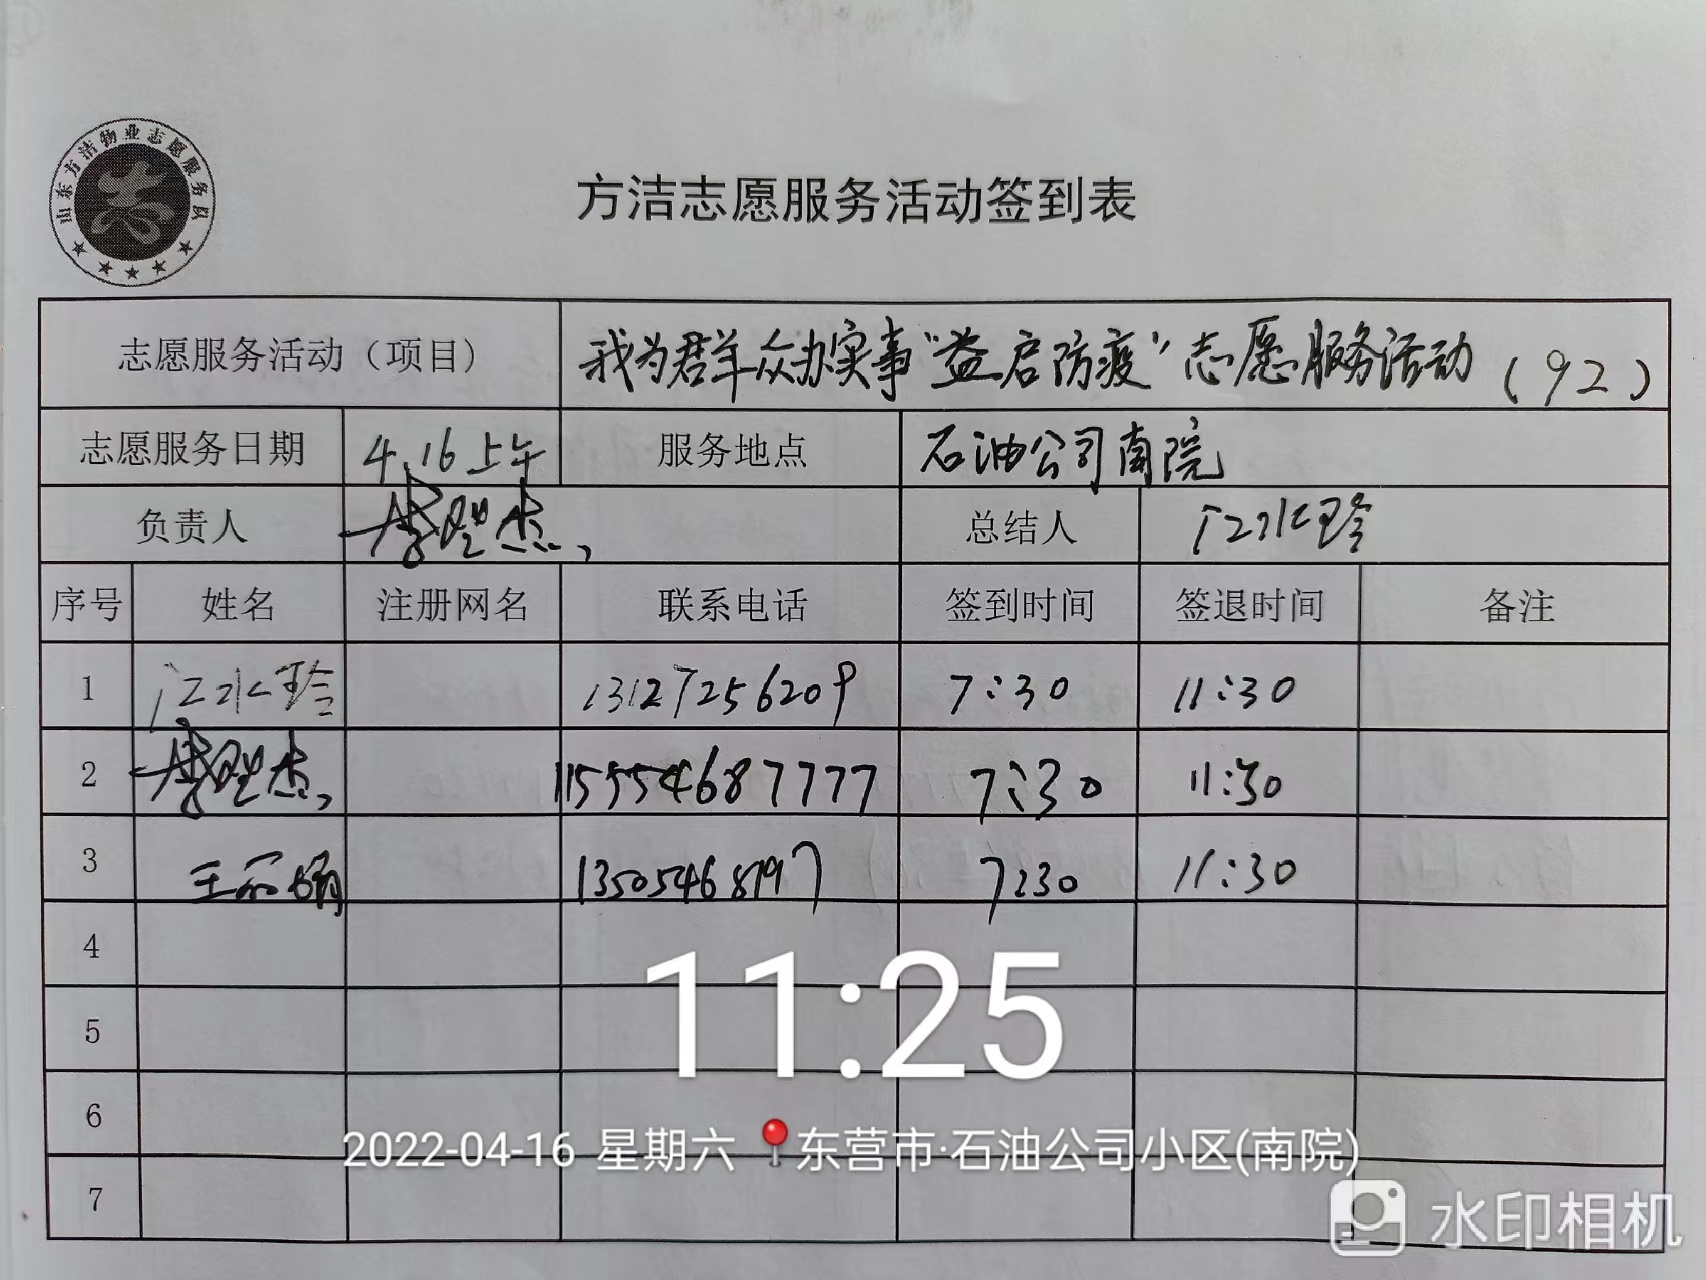 山东方洁物业志愿服务队
方洁志愿服务活动签到表
志愿服务活动（项目） 我为群众办实事“益启防疫”志愿服务活动（92）
志愿服务日期 4.16上午 服务地点 石油公司南院
负责人 总结人 江水玲
序号 姓名 注册网名 联系电话 签到时间 签退时间 备注
1 江水玲 13127256209 7:30 11:30
2 15554687777 7:30 11:30
3 王 娟 13505468797 7:30 11:30
4
11:25
5
6
2022-04-16 星期六 东营市·石油公司小区(南院)
7
水印相机